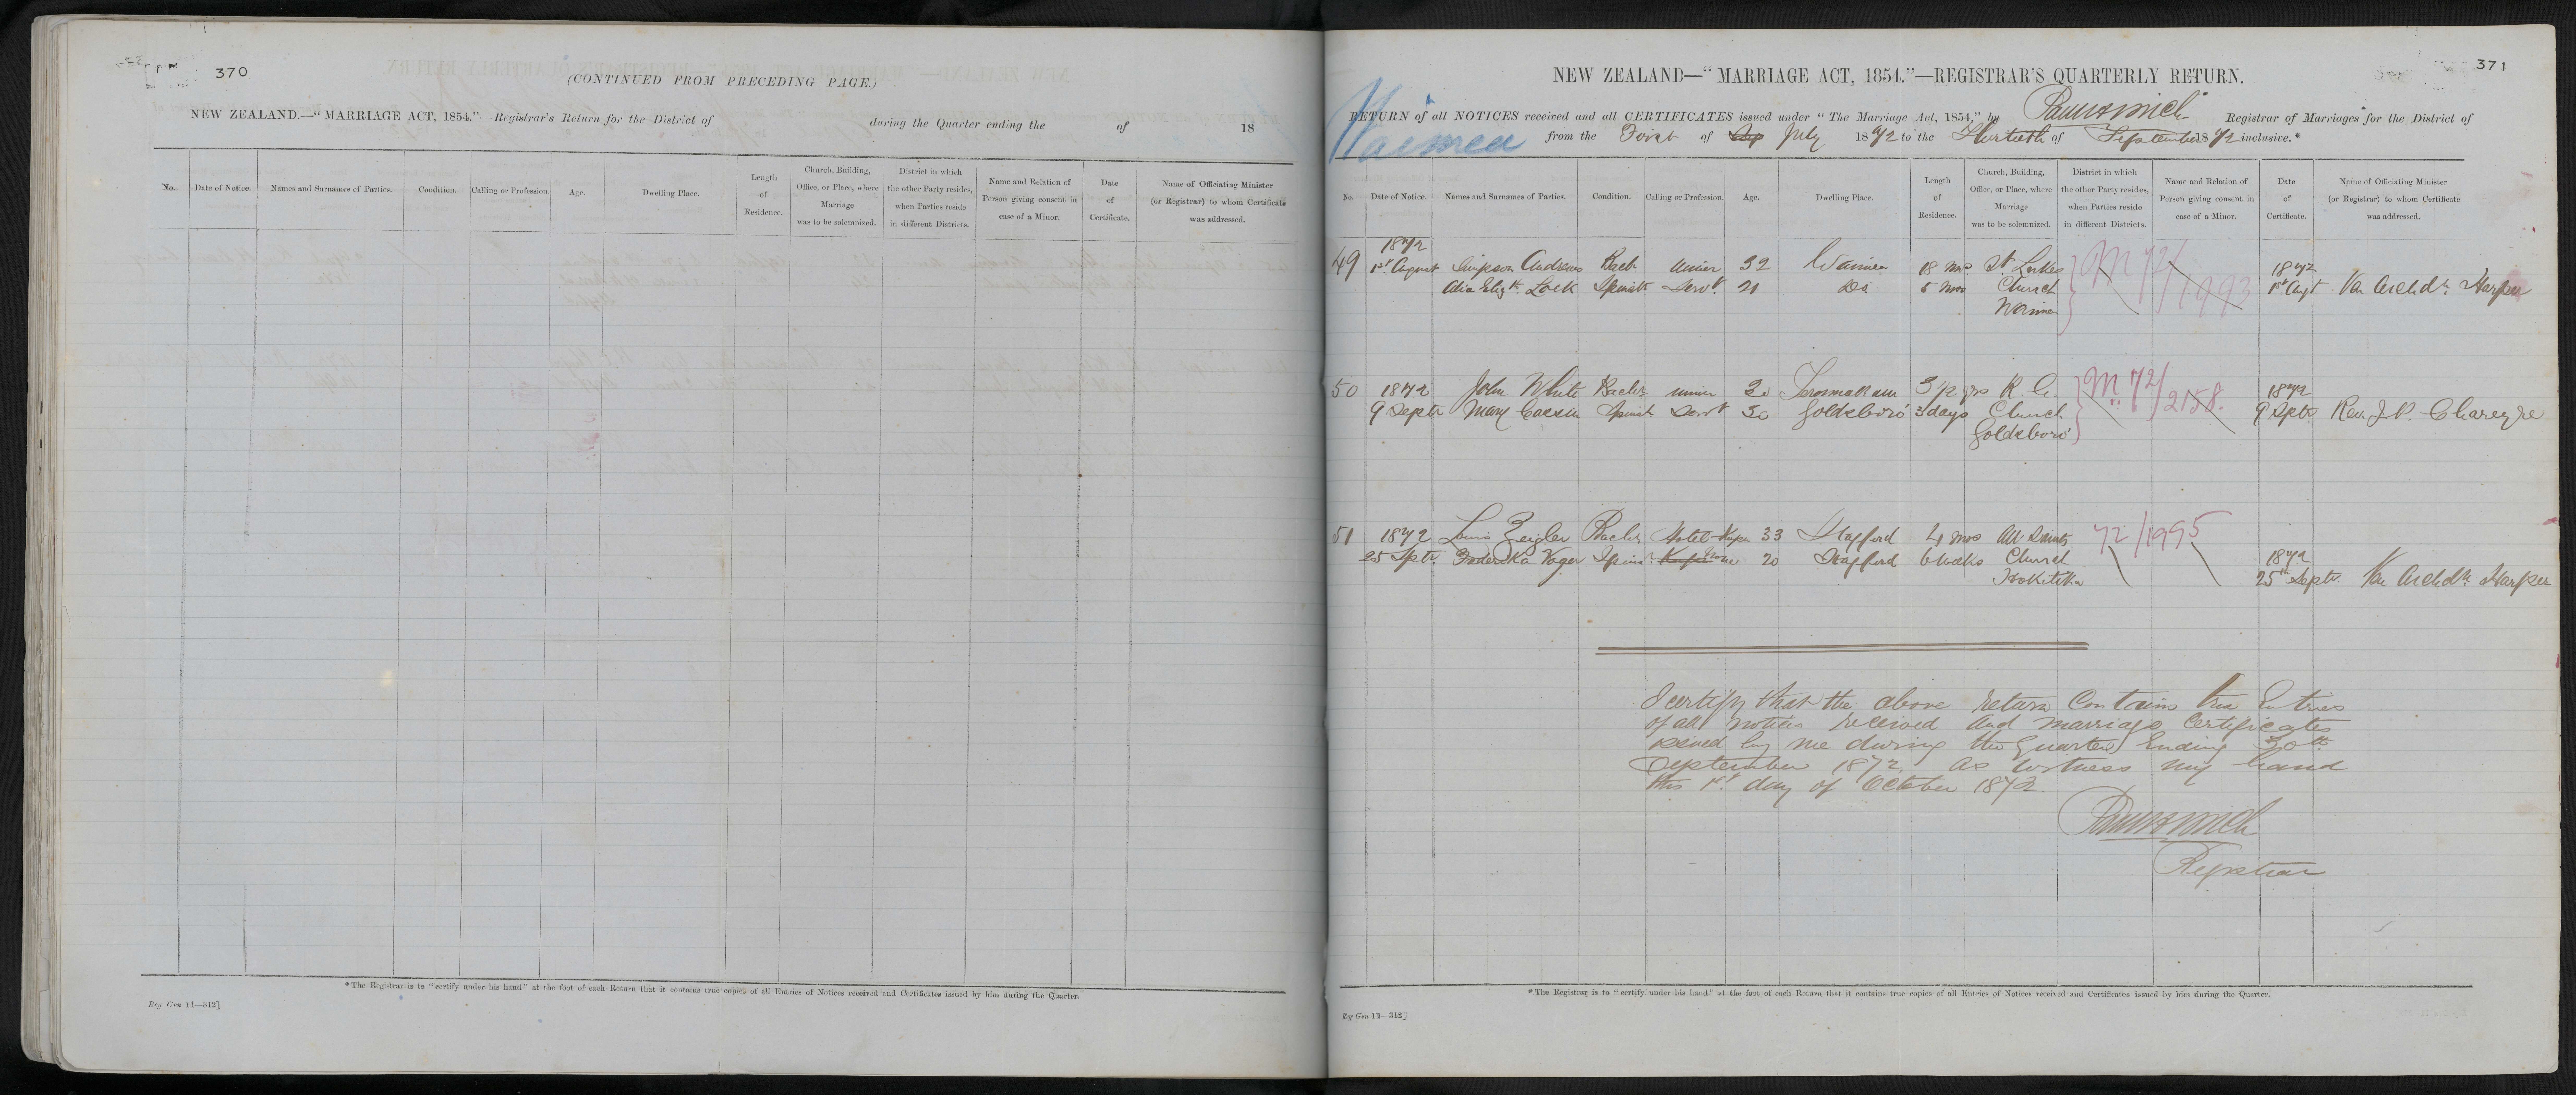 370
(CONTINUED FROM PRECEDING PAGE.)
NEW ZEALAND.—"MARRIAGE ACT, 1854."—Registrar's Return for the District of during the Quarter ending the of 18
No. Date of Notice. Names and Surnames of Parties. Condition. Calling or Profession. Age. Dwelling Place. Length of Residence. Church, Building, Office, or Place, where Marriage was to be solemnized. District in which the other Party resides, when Parties reside in different Districts. Name and Relation of Person giving consent in case of a Minor. Date of Certificate. Name of Officiating Minister (or Registrar) to whom Certificate was addressed.
*The Registrar is to "certify under his hand" at the foot of each Return that it contains true copies of all Entries of Notices received and Certificates issued by him during the Quarter.
Reg Gen 11—312]
371
NEW ZEALAND—"MARRIAGE ACT, 1854."—REGISTRAR'S QUARTERLY RETURN.
RETURN of all NOTICES received and all CERTIFICATES issued under "The Marriage Act, 1854," by Registrar of Marriages for the District of
Waimea from the First of July 1872 to the Thirtieth of September 1872 inclusive.*
No. Date of Notice. Names and Surnames of Parties. Condition. Calling or Profession. Age. Dwelling Place. Length of Residence. Church, Building, Office, or Place, where Marriage was to be solemnized. District in which the other Party resides, when Parties reside in different Districts. Name and Relation of Person giving consent in case of a Minor. Date of Certificate. Name of Officiating Minister (or Registrar) to whom Certificate was addressed.
1872
49 1st August Simpson Andrews Bach. Miner 32 Waimea 18 mos. St Lukes M 72/1993 1872
Alice Elizth. Lock Spinstr. Servt. 21 Do 5 mos Church 1st Augt Ven Archdn. Harper
Waimea
50 1872 John White Bachlr miner 30 3 1/2 yrs R C. M. 72/2158. 1872
9 Septr Mary Spinstr Servt 30 Goldsboro' 3 days Church 9 Septr Rev. J P Chareyre
Goldsboro'
51 1872 Louis Zeigler Bachlr Hotel-Keeper 33 Stafford 4 mos All Saints 72/1995
25 Septr. Frederika Voger Spinstr. none 20 Stafford 6 weeks Church 1872
Hokitika 25th Septr. Ven Archdn. Harper
I certify that the above return contains true Entries
of all notices received and marriage Certificates
issued by me during the Quarter Ending 30th
September 1872 as witness my hand
this 1st day of October 1872.
Registrar
*The Registrar is to "certify under his hand" at the foot of each Return that it contains true copies of all Entries of Notices received and Certificates issued by him during the Quarter.
Reg Gen 11—312]